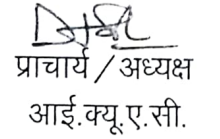 प्राचार्य / अध्यक्ष
आई.क्यू.ए.सी.